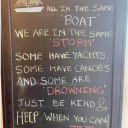 ALL IN THE SAME
"BOAT"
WE ARE IN THE SAME
"STORM"
SOME HAVE YACHTS
SOME HAVE CANOES
AND SOME ARE
"DROWNING"
JUST BE KIND &
HELP WHEN YOU CAN